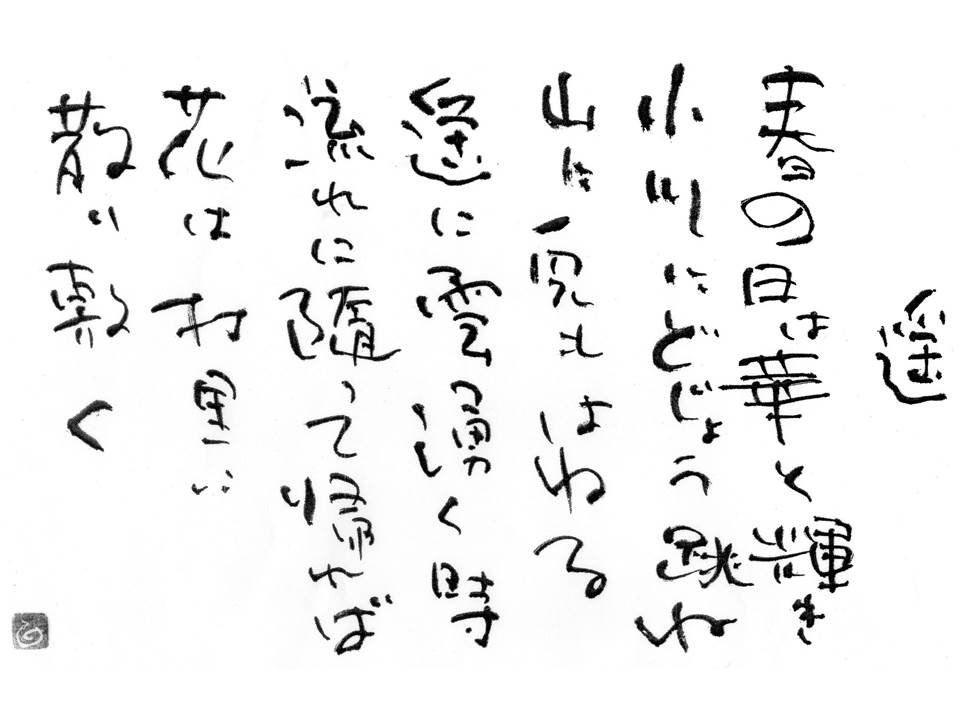 遥
春の日は華と輝き
小川にどじょう跳ね
山に兎もはねる
遥に雲湧く時
流れに随って帰れば
花は村里に
散り敷く